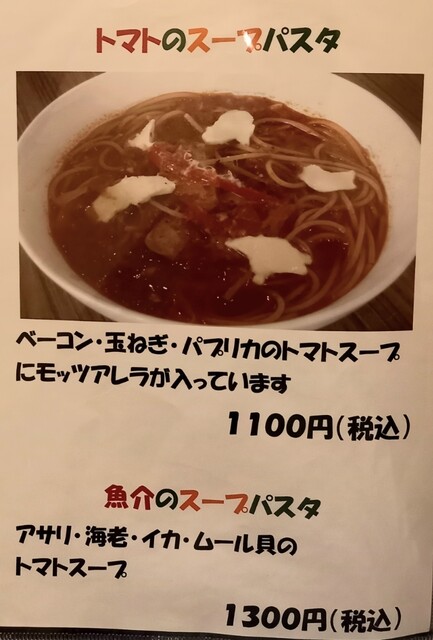 トマトのスープパスタ
ベーコン・玉ねぎ・パプリカのトマトスープ
にモッツアレラが入っています
1100円(税込)
魚介のスープパスタ
アサリ・海老・イカ・ムール貝の
トマトスープ
1300円(税込)